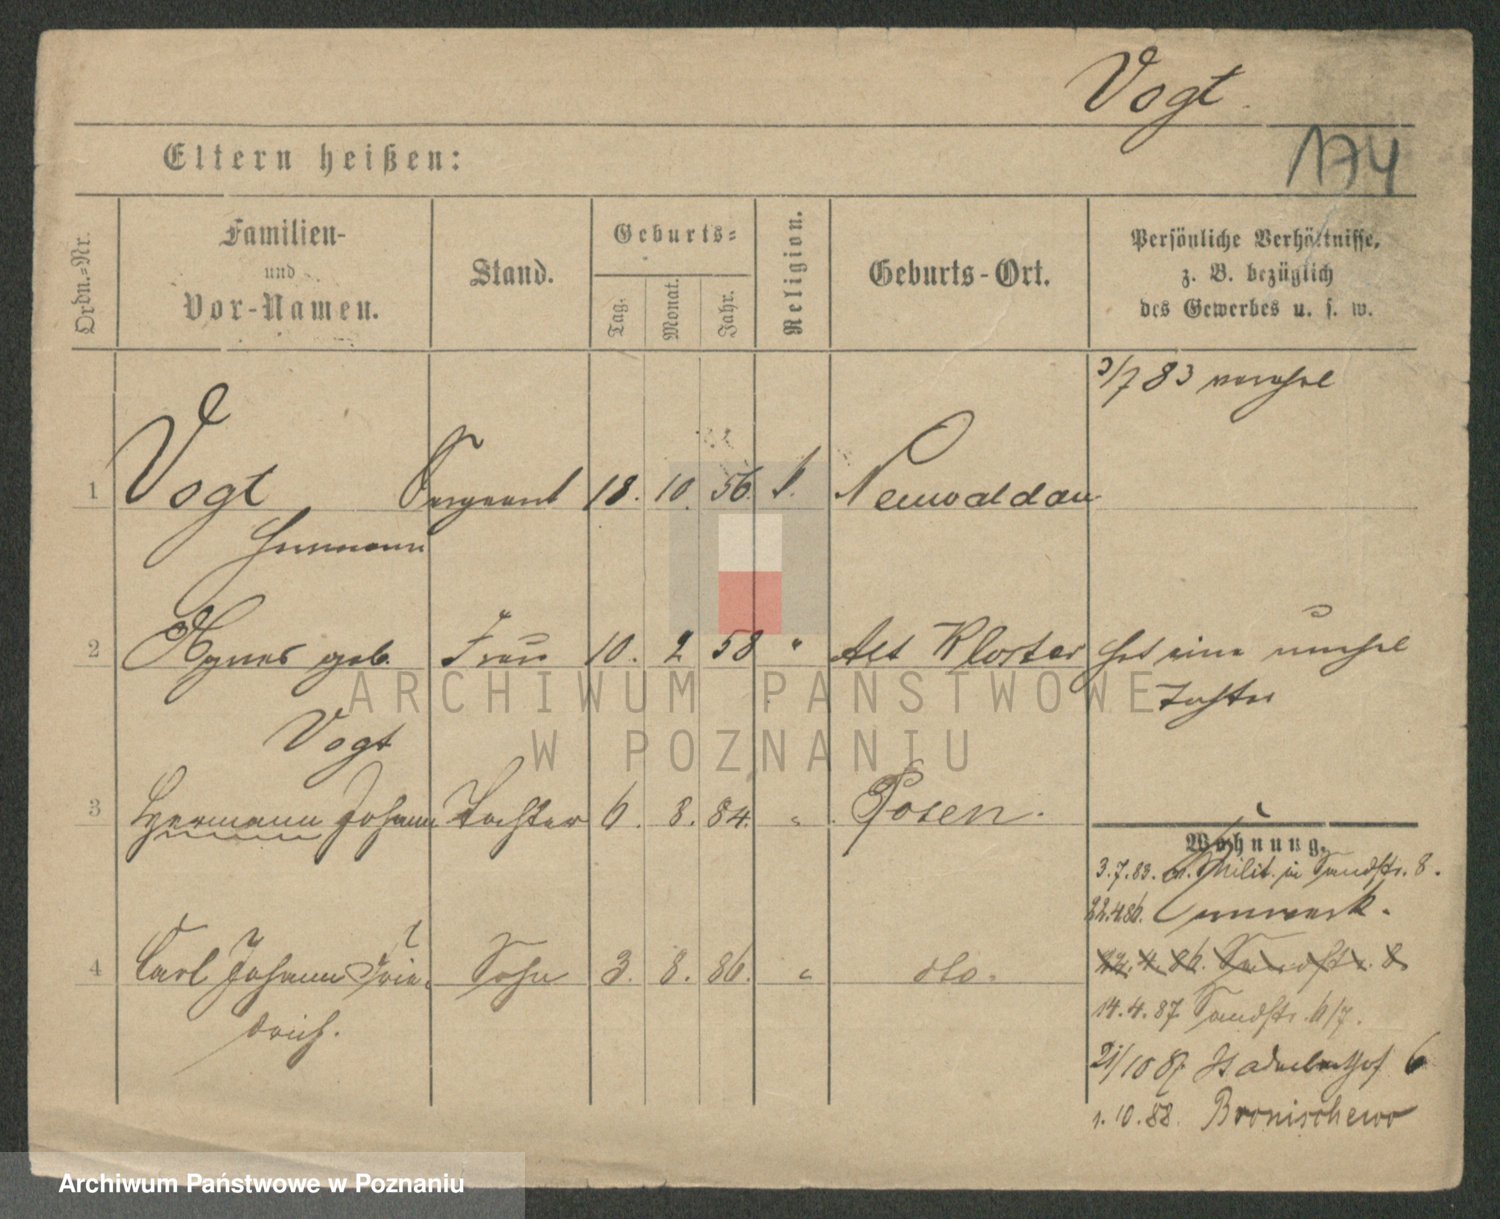 Vogt.
174
Eltern heißen:
Ordn.=Nr.
Familien-
und
Vor-Namen.
Stand.
Geburts=
Tag.
Monat.
Jahr.
Religion.
Geburts-Ort.
Persönliche Verhältnisse,
z. B. bezüglich
des Gewerbes u. s. w.
3/7 83
1 Vogt Sergeant 18. 10. 56. Neuwaldau
Hermann
2 Agnes geb. Frau 10. 2 58 " Alt Kloster hat eine unehel
Tochter
Vogt
3 Hermann Johann Tochter 6. 8. 84. " Posen.
Wohnung.
3.7.83. Milit. in Sandstr. 8.
22.4.86.
4 Carl Johann Frie- Sohn 3. 8. 86. " dto.
drich.
14.4.87 Sandstr. 6/7.
21/10 87 6
1.10.88. Bronischewo
ARCHIWUM PAŃSTWOWE
W POZNANIU
Archiwum Państwowe w Poznaniu